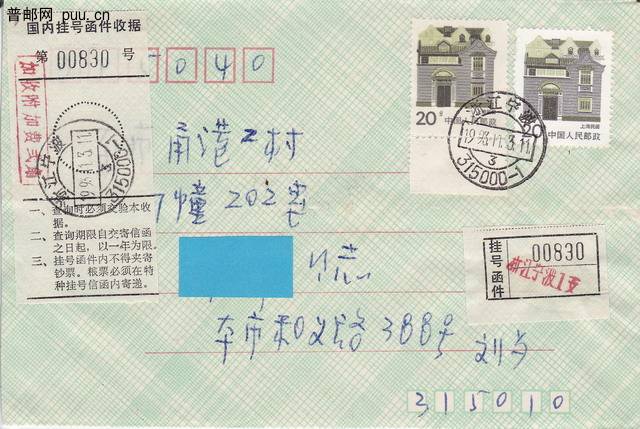 普邮网 puu.cn
国内挂号函件收据
第 00830 号
加收附加费贰角
5040
浙江宁波
315000-1
一、查询时必须交验本收
据。
二、查询期限自交寄信函
之日起，以一年为限。
三、挂号函件内不得夹寄
钞票。粮票必须在特
种挂号信函内寄递。
20分
中国人民邮政
上海民居
20
中国人民邮政
浙江宁波
3
315000-1
村
7幢 202室
挂号函件
00830
浙江宁波1支
收
本市和义路388号
315010